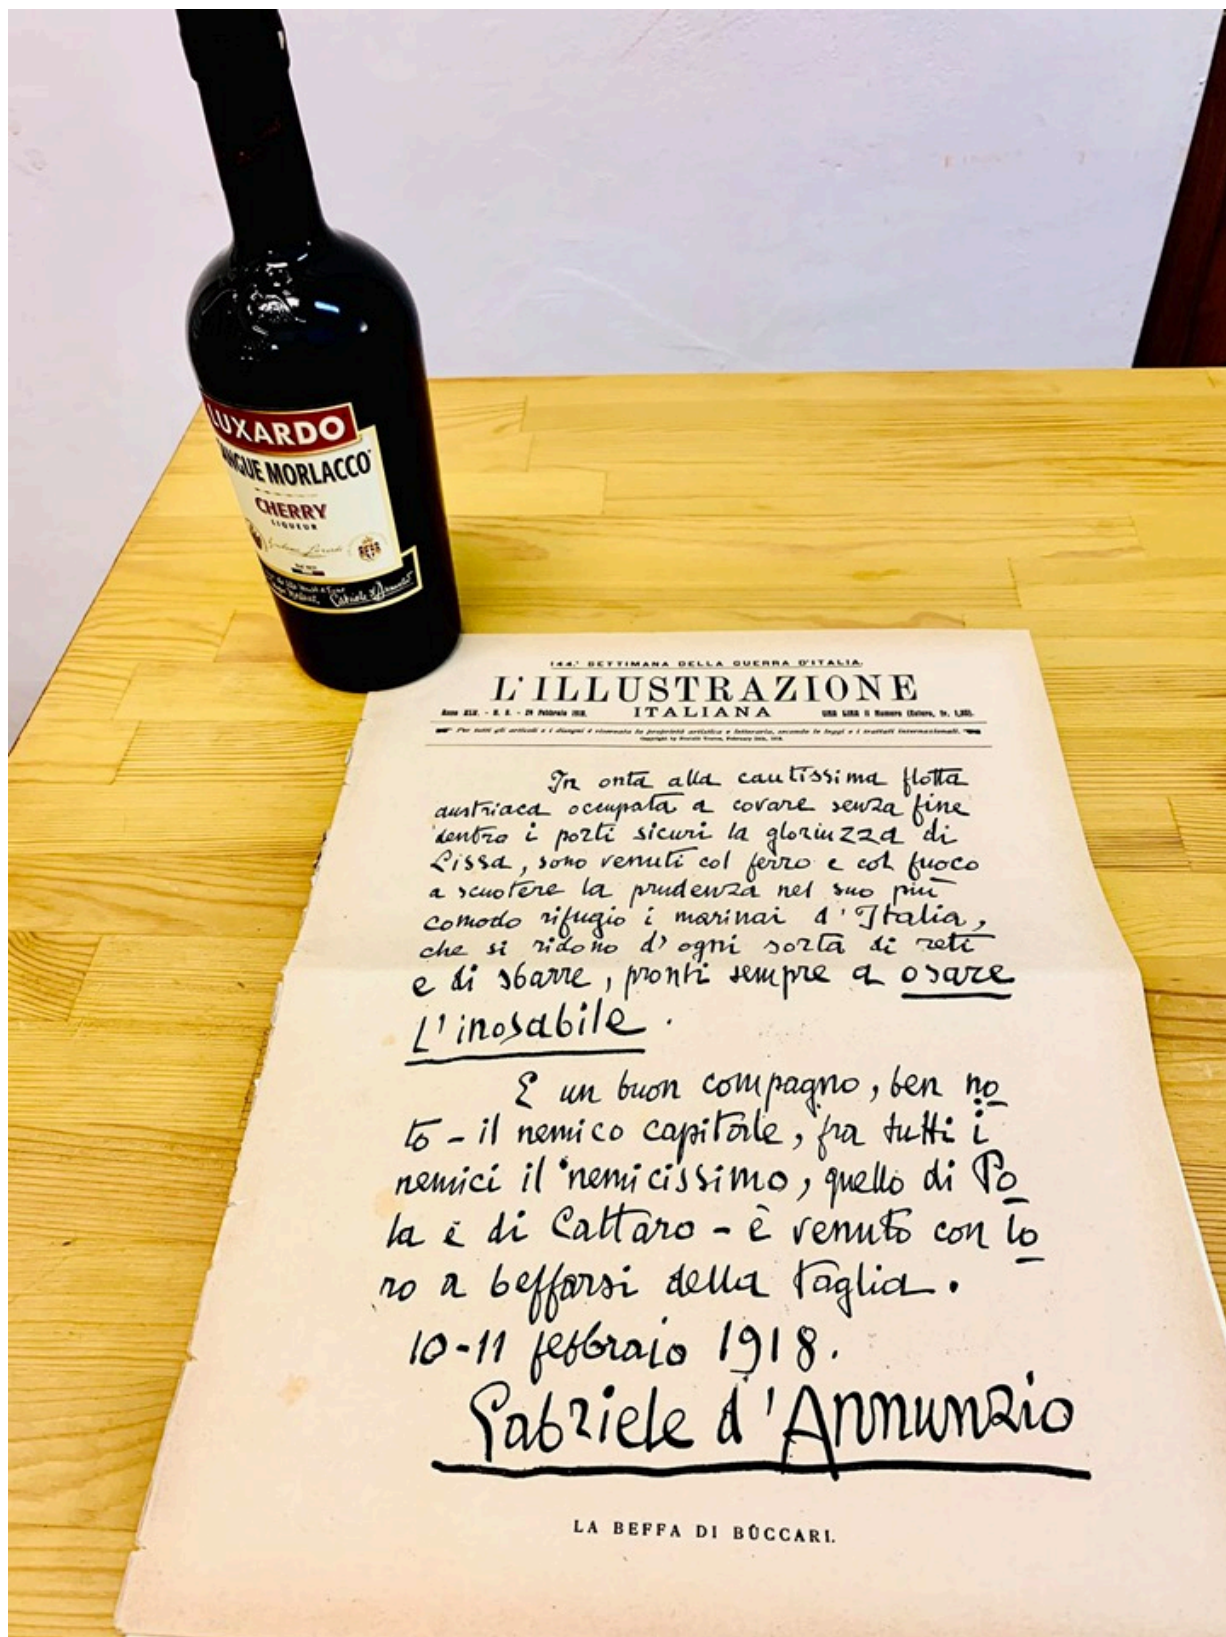 LUXARDO
SANGUE MORLACCO
CHERRY
LIQUEUR
Gabriele d'Annunzio
144.ª SETTIMANA DELLA GUERRA D'ITALIA.
L'ILLUSTRAZIONE
ITALIANA
Anno XLV. - N. 8. - 24 Febbraio 1918.
UNA LIRA il Numero (Estero, fr. 1,30).
Per tutti gli articoli e i disegni è riservata la proprietà artistica e letteraria, secondo le leggi e i trattati internazionali.
Copyright by Fratelli Treves, February 24th, 1918.
In onta alla cautissima flotta
austriaca occupata a covare senza fine
dentro i porti sicuri la gloriuzza di
Lissa, sono venuti col ferro e col fuoco
a scuotere la prudenza nel suo più
comodo rifugio i marinai d'Italia,
che si ridono d'ogni sorta di reti
e di sbarre, pronti sempre a osare
l'inosabile.
E un buon compagno, ben no
to - il nemico capitale, fra tutti i
nemici il nemicissimo, quello di Po
la e di Cattaro - è venuto con lo
ro a beffarsi della taglia.
10-11 febbraio 1918.
Gabriele d'Annunzio
LA BEFFA DI BÛCCARI.